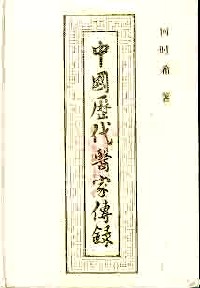 何时希 著
中國歷代醫家傳録